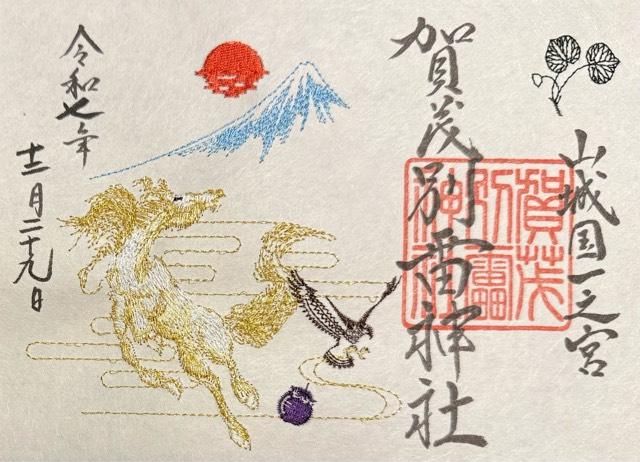 山城国一之宮
賀茂別雷神社
賀茂別雷神社
令和七年
十二月二十九日